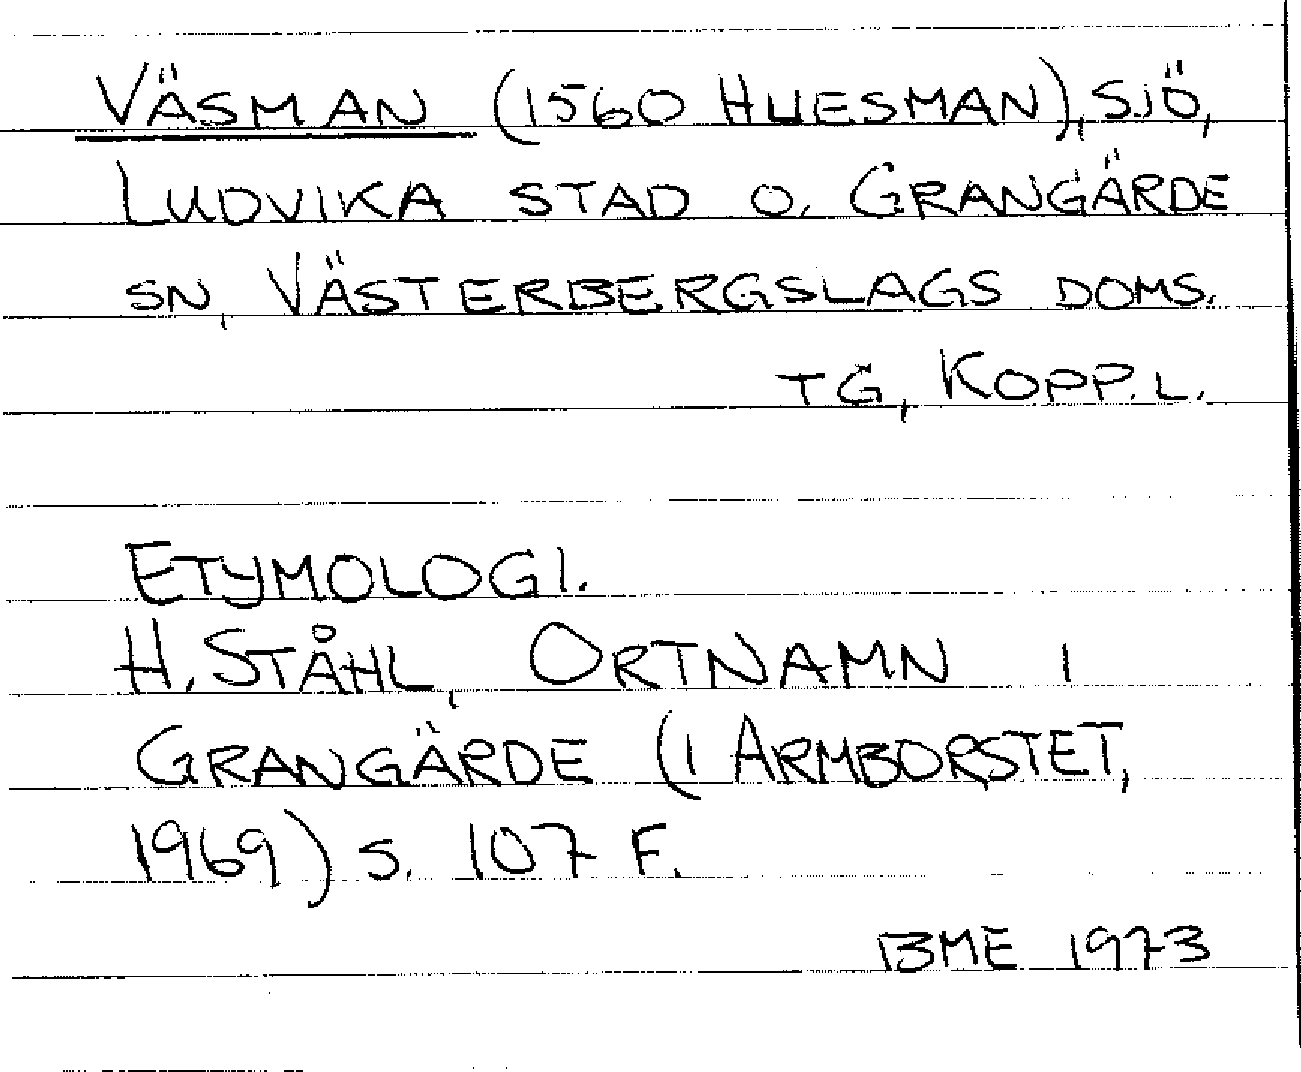 VÄSMAN (1560 HUESMAN), SJÖ,
LUDVIKA STAD O. GRANGÄRDE
SN, VÄSTERBERGSLAGS DOMS.
TG, KOPP. L.
ETYMOLOGI.
H. STÅHL, ORTNAMN I
GRANGÄRDE (I ARMBORSTET,
1969) S. 107 F.
BME 1973